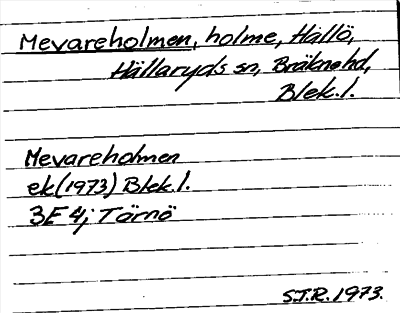 Mevareholmen, holme, Hällö,
Hällaryds sn, Bräknehd,
Blek. l.
Mevareholmen
ek (1973) Blek. l.
3E 4j Tärnö
S.T.R. 1973.